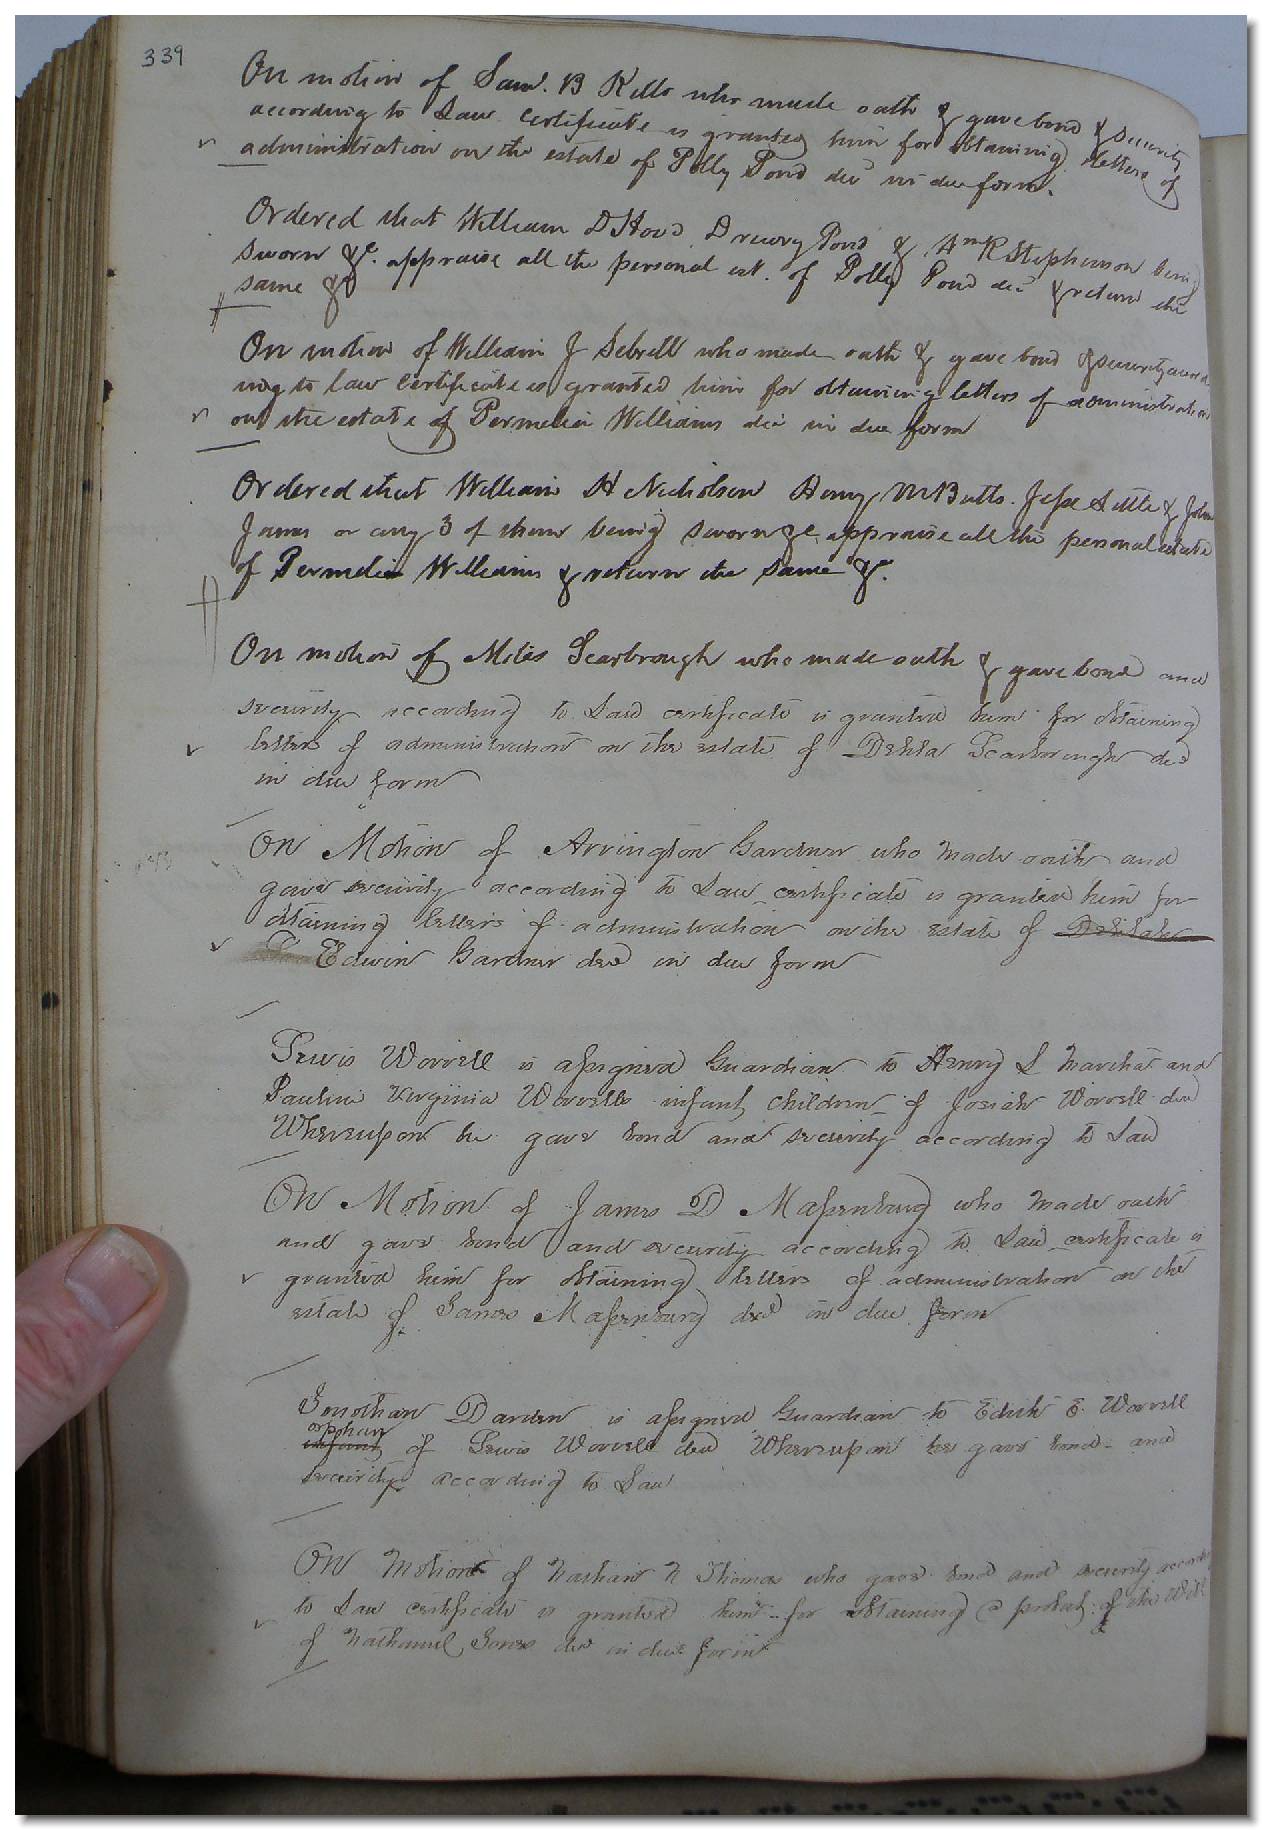 339
On motion of Saml. B Kello who made oath & gave bond & security
according to Law certificate is granted him for obtaining letters of
administration on the estate of Polly Pond decd in due form.
Ordered that William D Hood Drewry Pond & Wm R Stephenson being
sworn &c. appraise all the personal est. of Polly Pond decd & return the
same &c
On motion of William J Sebrell who made oath & gave bond & security accord
ing to law certificate is granted him for obtaining letters of administration
on the estate of Permelia Williams decd in due form
Ordered that William H Nicholson Henry M Butts. Jesse Little & John
James or any 3 of them being sworn &c appraise all the personal estate
of Permelia Williams & return the same &c.
On motion of Miles Scarbrough who made oath & gave bond and
security according to Law certificate is granted him for obtaining
letters of administration on the estate of Scarborough decd
in due form
On Motion of Arrington Gardner who made oath and
gave security according to Law certificate is granted him for
obtaining letters of administration on the estate of
Edwin Gardner decd in due form
Lewis Worrell is assigned Guardian to Henry L Martha and
Paulina Virginia Worrells infant children of Josiah Worrell decd
Whereupon he gave bond and security according to Law
On Motion of James D Massenburg who made oath
and gave bond and security according to Law certificate is
granted him for obtaining letters of administration on the
estate of James Massenburg decd in due form
Jonothan Darden is assigned Guardian to Edith E. Worrell
orphan
infant of Lewis Worrell decd Whereupon he gave bond and
security according to Law
On Motion of Nathan N Thomas who gave bond and security according
to Law certificate is granted him for obtaining a probat of the Will
of Nathaniel Jones decd in due form